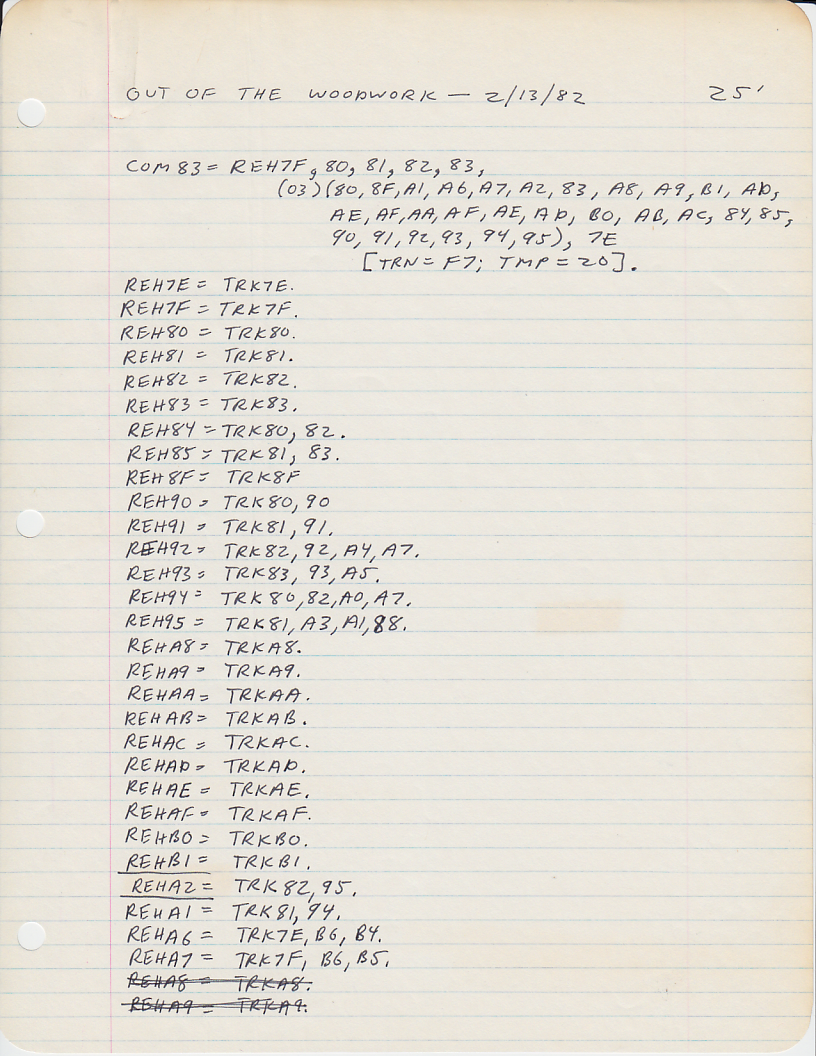 OUT OF THE WOODWORK — 2/13/82 25'
COM83 = REH7F, 80, 81, 82, 83,
(03)(80, 8F, A1, A6, A7, A2, 83, A8, A9, B1, AD,
AE, AF, AA, AF, AE, AD, B0, AB, AC, 84, 85,
90, 91, 92, 93, 94, 95), 7E
[TRN = F7; TMP = 20].
REH7E = TRK7E.
REH7F = TRK7F.
REH80 = TRK80.
REH81 = TRK81.
REH82 = TRK82.
REH83 = TRK83.
REH84 = TRK80, 82.
REH85 = TRK81, 83.
REH8F = TRK8F
REH90 = TRK80, 90
REH91 = TRK81, 91.
REH92 = TRK82, 92, A4, A7.
REH93 = TRK83, 93, A5.
REH94 = TRK80, 82, A0, A7.
REH95 = TRK81, A3, A1, 88.
REHA8 = TRKA8.
REHA9 = TRKA9.
REHAA = TRKAA.
REHAB = TRKAB.
REHAC = TRKAC.
REHAD = TRKAD.
REHAE = TRKAE.
REHAF = TRKAF.
REHB0 = TRKB0.
REHB1 = TRKB1.
REHA2 = TRK82, 95.
REHA1 = TRK81, 94.
REHA6 = TRK7E, B6, B4.
REHA7 = TRK7F, B6, B5.
REHA8 = TRKA8.
REHA9 = TRKA9.